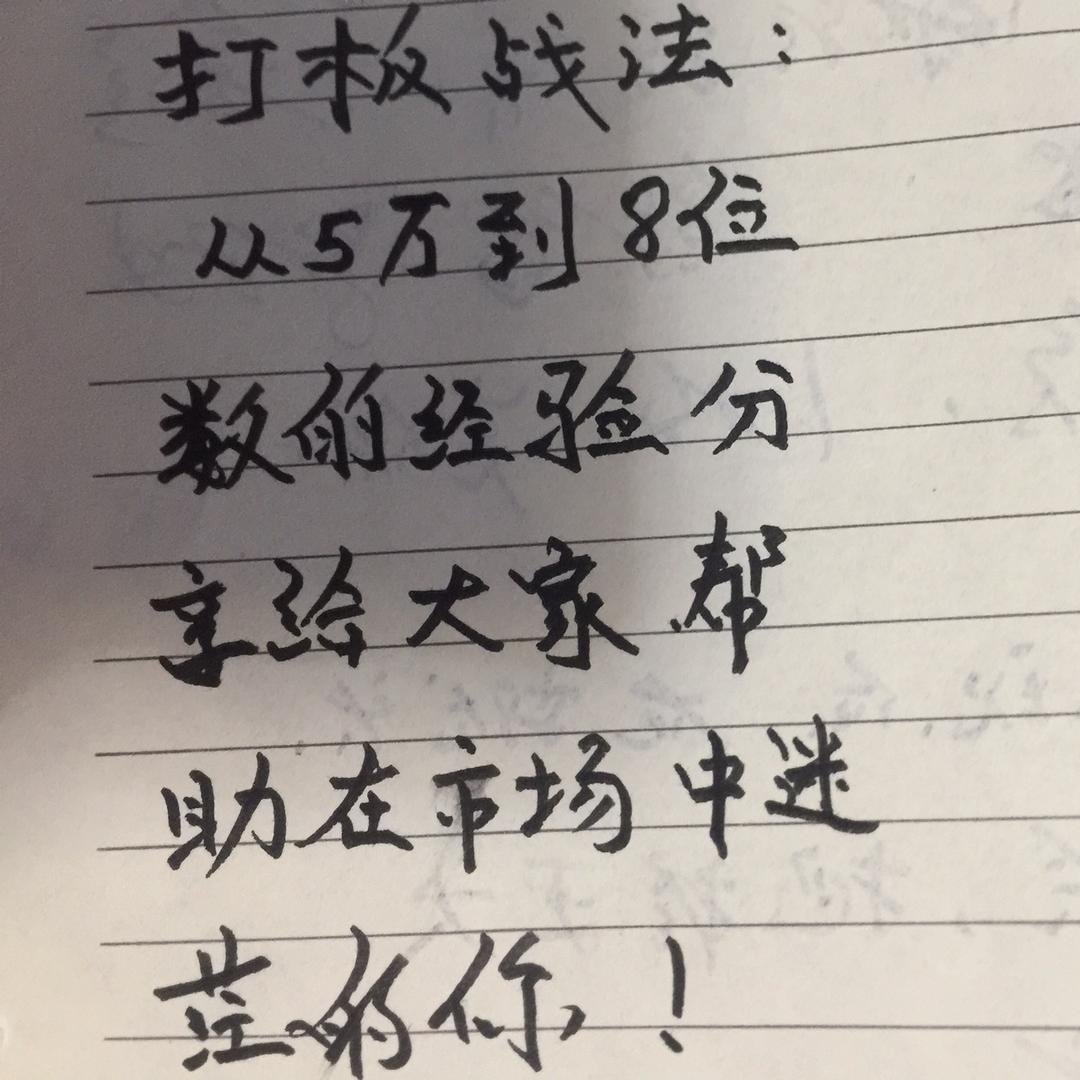 打板战法：
从5万到8位
数的经验分
享给大家帮
助在市场中迷
茫的你！